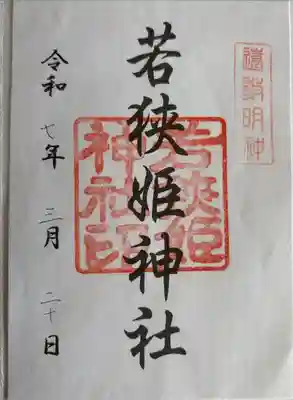 遠敷明神
若狭姫神社
若狭姫神社印
令和七年三月二十日